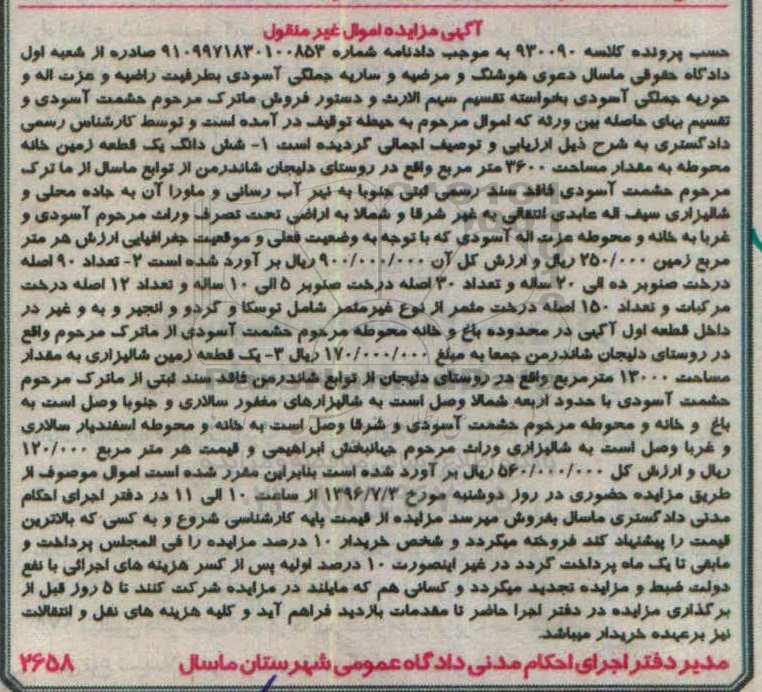 آگهی مزایده اموال غیر منقول
حسب پرونده کلاسه ۹۳۰۰۹۰ به موجب دادنامه شماره ۹۱۰۹۹۷۱۸۳۰۱۰۰۸۵۳ صادره از شعبه اول
دادگاه حقوقی ماسال دعوی هوشنگ و مرضیه و ساریه جملگی آسودی بطرفیت راضیه و عزت اله و
حوریه جملگی آسودی بخواسته تقسیم سهم الارث و دستور فروش ماترک مرحوم حشمت آسودی و
تقسیم بهای حاصله بین ورثه که اموال مرحوم به حیطه توقیف در آمده است و توسط کارشناس رسمی
دادگستری به شرح ذیل ارزیابی و توصیف اجمالی گردیده است ۱- شش دانگ یک قطعه زمین خانه
محوطه به مقدار مساحت ۳۶۰۰ متر مربع واقع در روستای دلیجان شاندرمن از توابع ماسال از ما ترک
مرحوم حشمت آسودی فاقد سند رسمی ثبتی جنوبا به نهر آب رسانی و ماورا آن به جاده محلی و
شالیزاری سیف اله عابدی انتقالی به غیر شرقا و شمالا به اراضی تحت تصرف وراث مرحوم آسودی و
غربا به خانه و محوطه عزت اله آسودی که با توجه به وضعیت فعلی و موقعیت جغرافیایی ارزش هر متر
مربع زمین ۲۵۰/۰۰۰ ریال و ارزش کل آن ۹۰۰/۰۰۰/۰۰۰ ریال بر آورد شده است ۲- تعداد ۹۰ اصله
درخت صنوبر ده الی ۲۰ ساله و تعداد ۳۰ اصله درخت صنوبر ۵ الی ۱۰ ساله و تعداد ۱۲ اصله درخت
مرکبات و تعداد ۱۵۰ اصله درخت مثمر از نوع غیرمثمر شامل توسکا و گردو و انجیر و به و غیر در
داخل قطعه اول آگهی در محدوده باغ و خانه محوطه مرحوم حشمت آسودی از ماترک مرحوم واقع
در روستای دلیجان شاندرمن جمعا به مبلغ ۱۷۰/۰۰۰/۰۰۰ ریال ۳- یک قطعه زمین شالیزاری به مقدار
مساحت ۱۳۰۰۰ مترمربع واقع در روستای دلیجان از توابع شاندرمن فاقد سند ثبتی از ماترک مرحوم
حشمت آسودی با حدود اربعه شمالا وصل است به شالیزارهای مغفور سالاری و جنوبا وصل است به
باغ و خانه و محوطه مرحوم حشمت آسودی و شرقا وصل است به خانه و محوطه اسفندیار سالاری
و غربا وصل است به شالیزاری وراث مرحوم جهانبخش ابراهیمی و قیمت هر متر مربع ۱۲۰/۰۰۰
ریال و ارزش کل ۵۶۰/۰۰۰/۰۰۰ ریال بر آورد شده است بنابراین مقرر شده است اموال موصوف از
طریق مزایده حضوری در روز دوشنبه مورخ ۱۳۹۶/۷/۳ از ساعت ۱۰ الی ۱۱ در دفتر اجرای احکام
مدنی دادگستری ماسال بفروش میرسد مزایده از قیمت پایه کارشناسی شروع و به کسی که بالاترین
قیمت را پیشنهاد کند فروخته میگردد و شخص خریدار ۱۰ درصد مزایده را فی المجلس پرداخت و
مابقی تا یک ماه پرداخت گردد در غیر اینصورت ۱۰ درصد اولیه پس از کسر هزینه های اجرائی با نفع
دولت ضبط و مزایده تجدید میگردد و کسانی هم که مایلند در مزایده شرکت کنند تا ۵ روز قبل از
برگذاری مزایده در دفتر اجرا حاضر تا مقدمات بازدید فراهم آید و کلیه هزینه های نقل و انتقالات
نیز برعهده خریدار میباشد.
مدیر دفتر اجرای احکام مدنی دادگاه عمومی شهرستان ماسال ۲۶۵۸